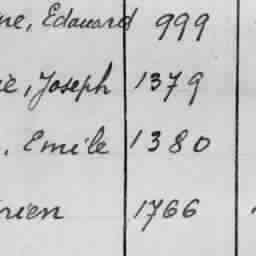 ne, Edouard 999
ie, Joseph 1379
, Emile 1380
rien 1766